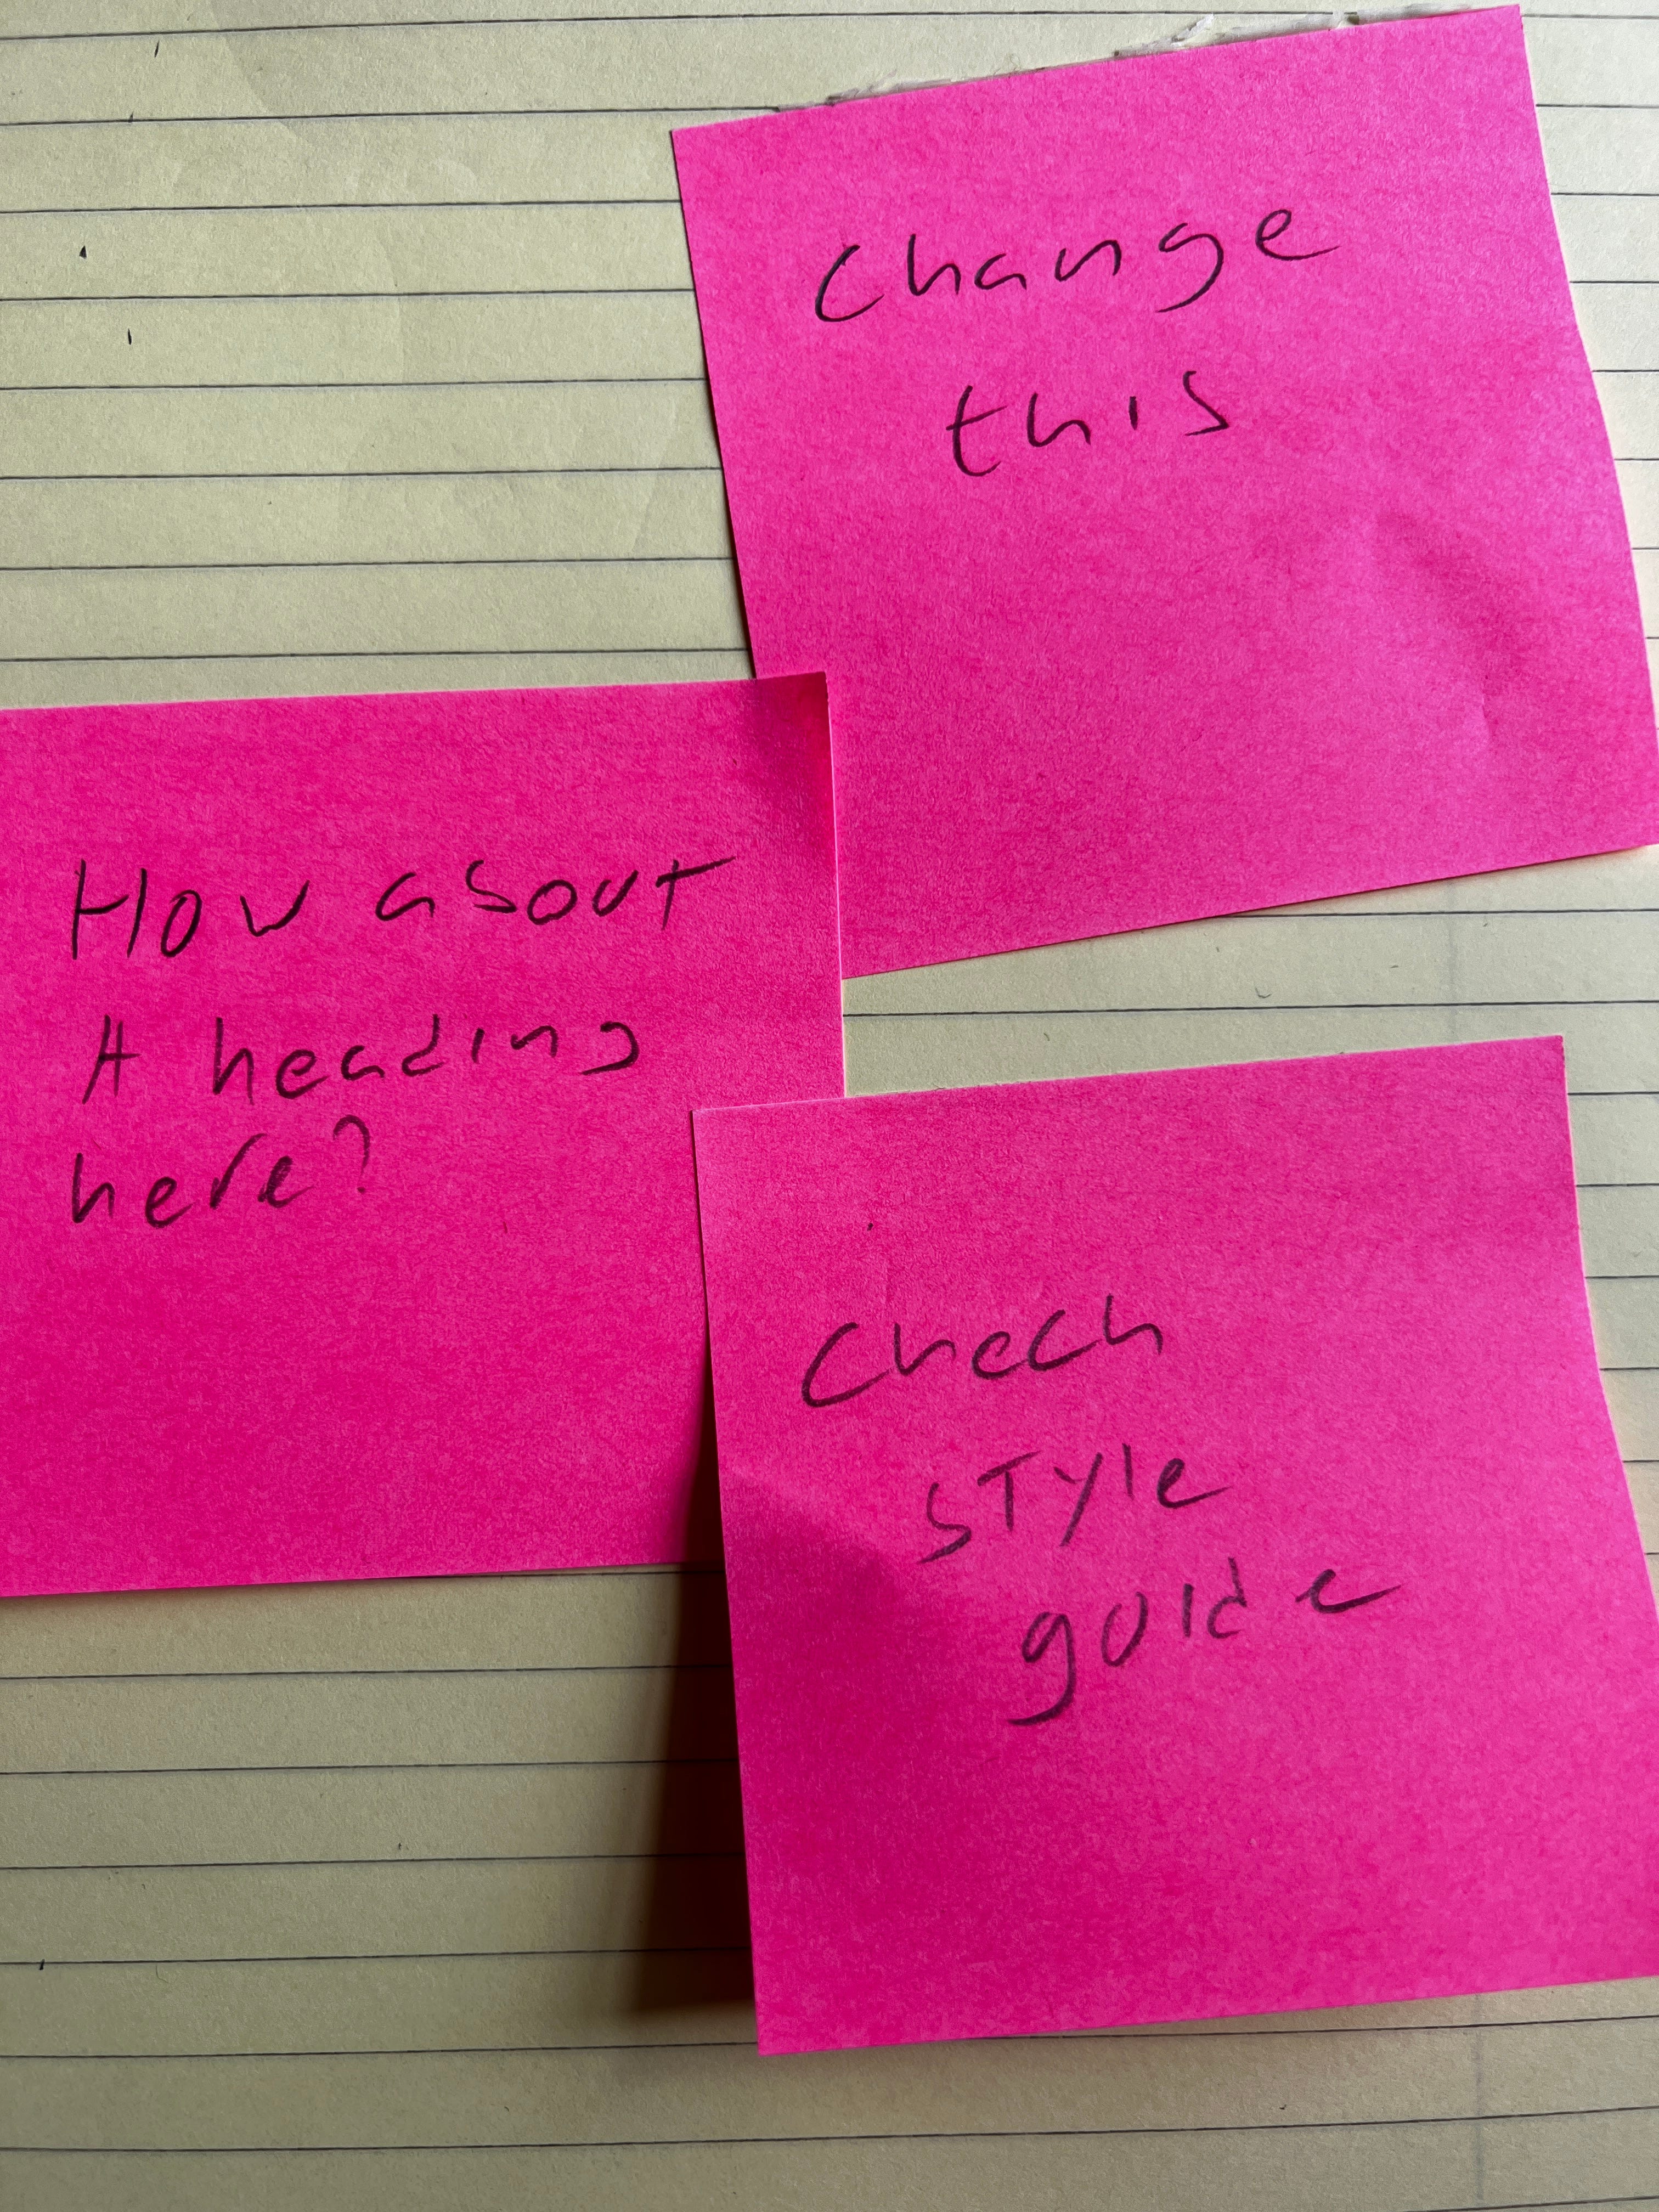 Change
this
How about
A heading
here?
Check
style
guide